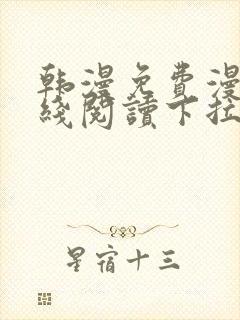 韩漫免費漫
綫閱讀下拉
星宿十三